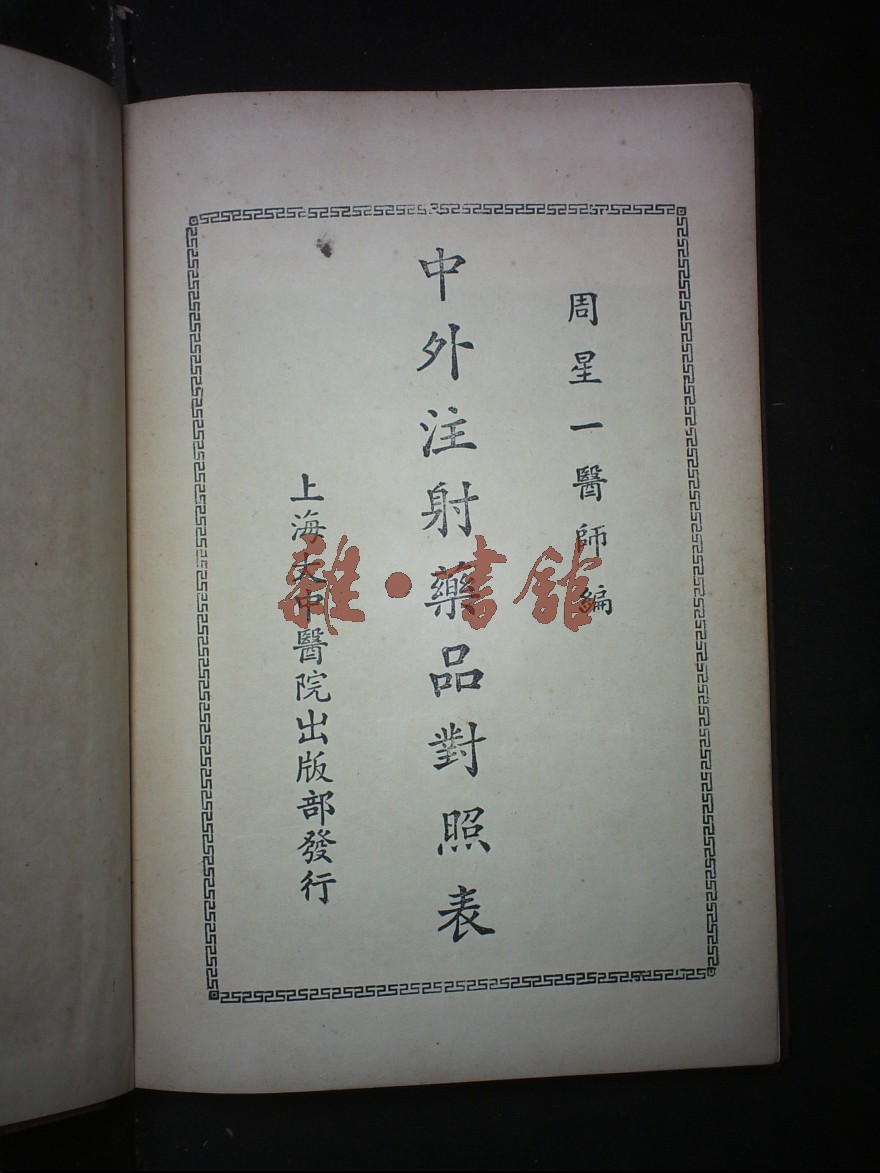 周星一醫師編
中外注射藥品對照表
上海大中醫院出版部發行
雜·書館